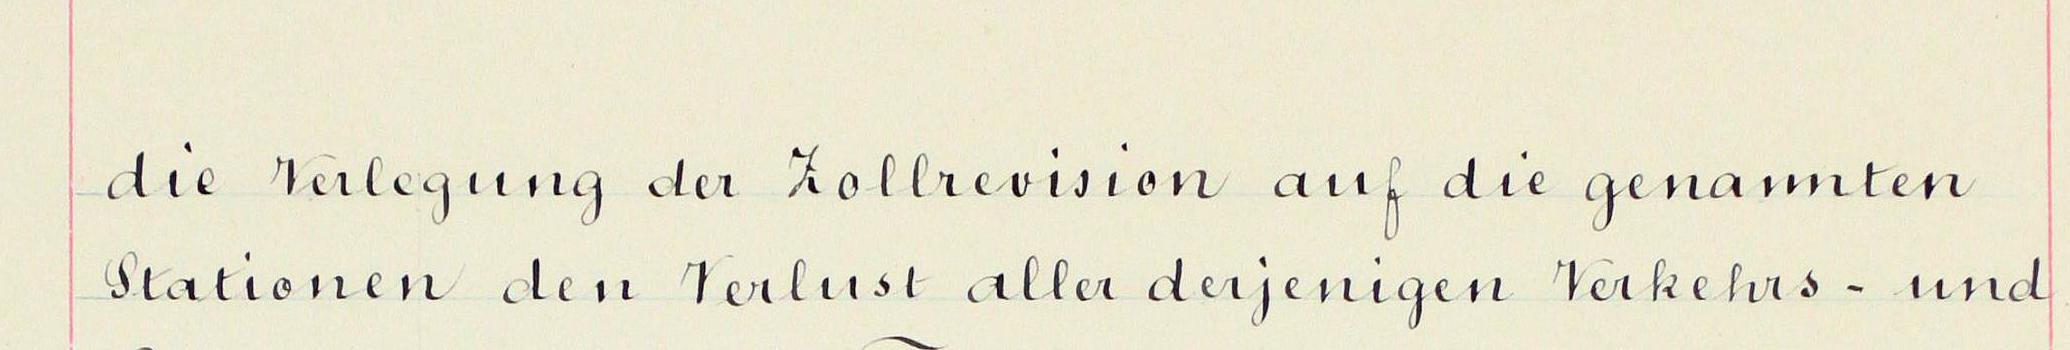 die Verlegung der Zollrevision auf die genannten
Stationen den Verlust aller derjenigen Verkehrs- und